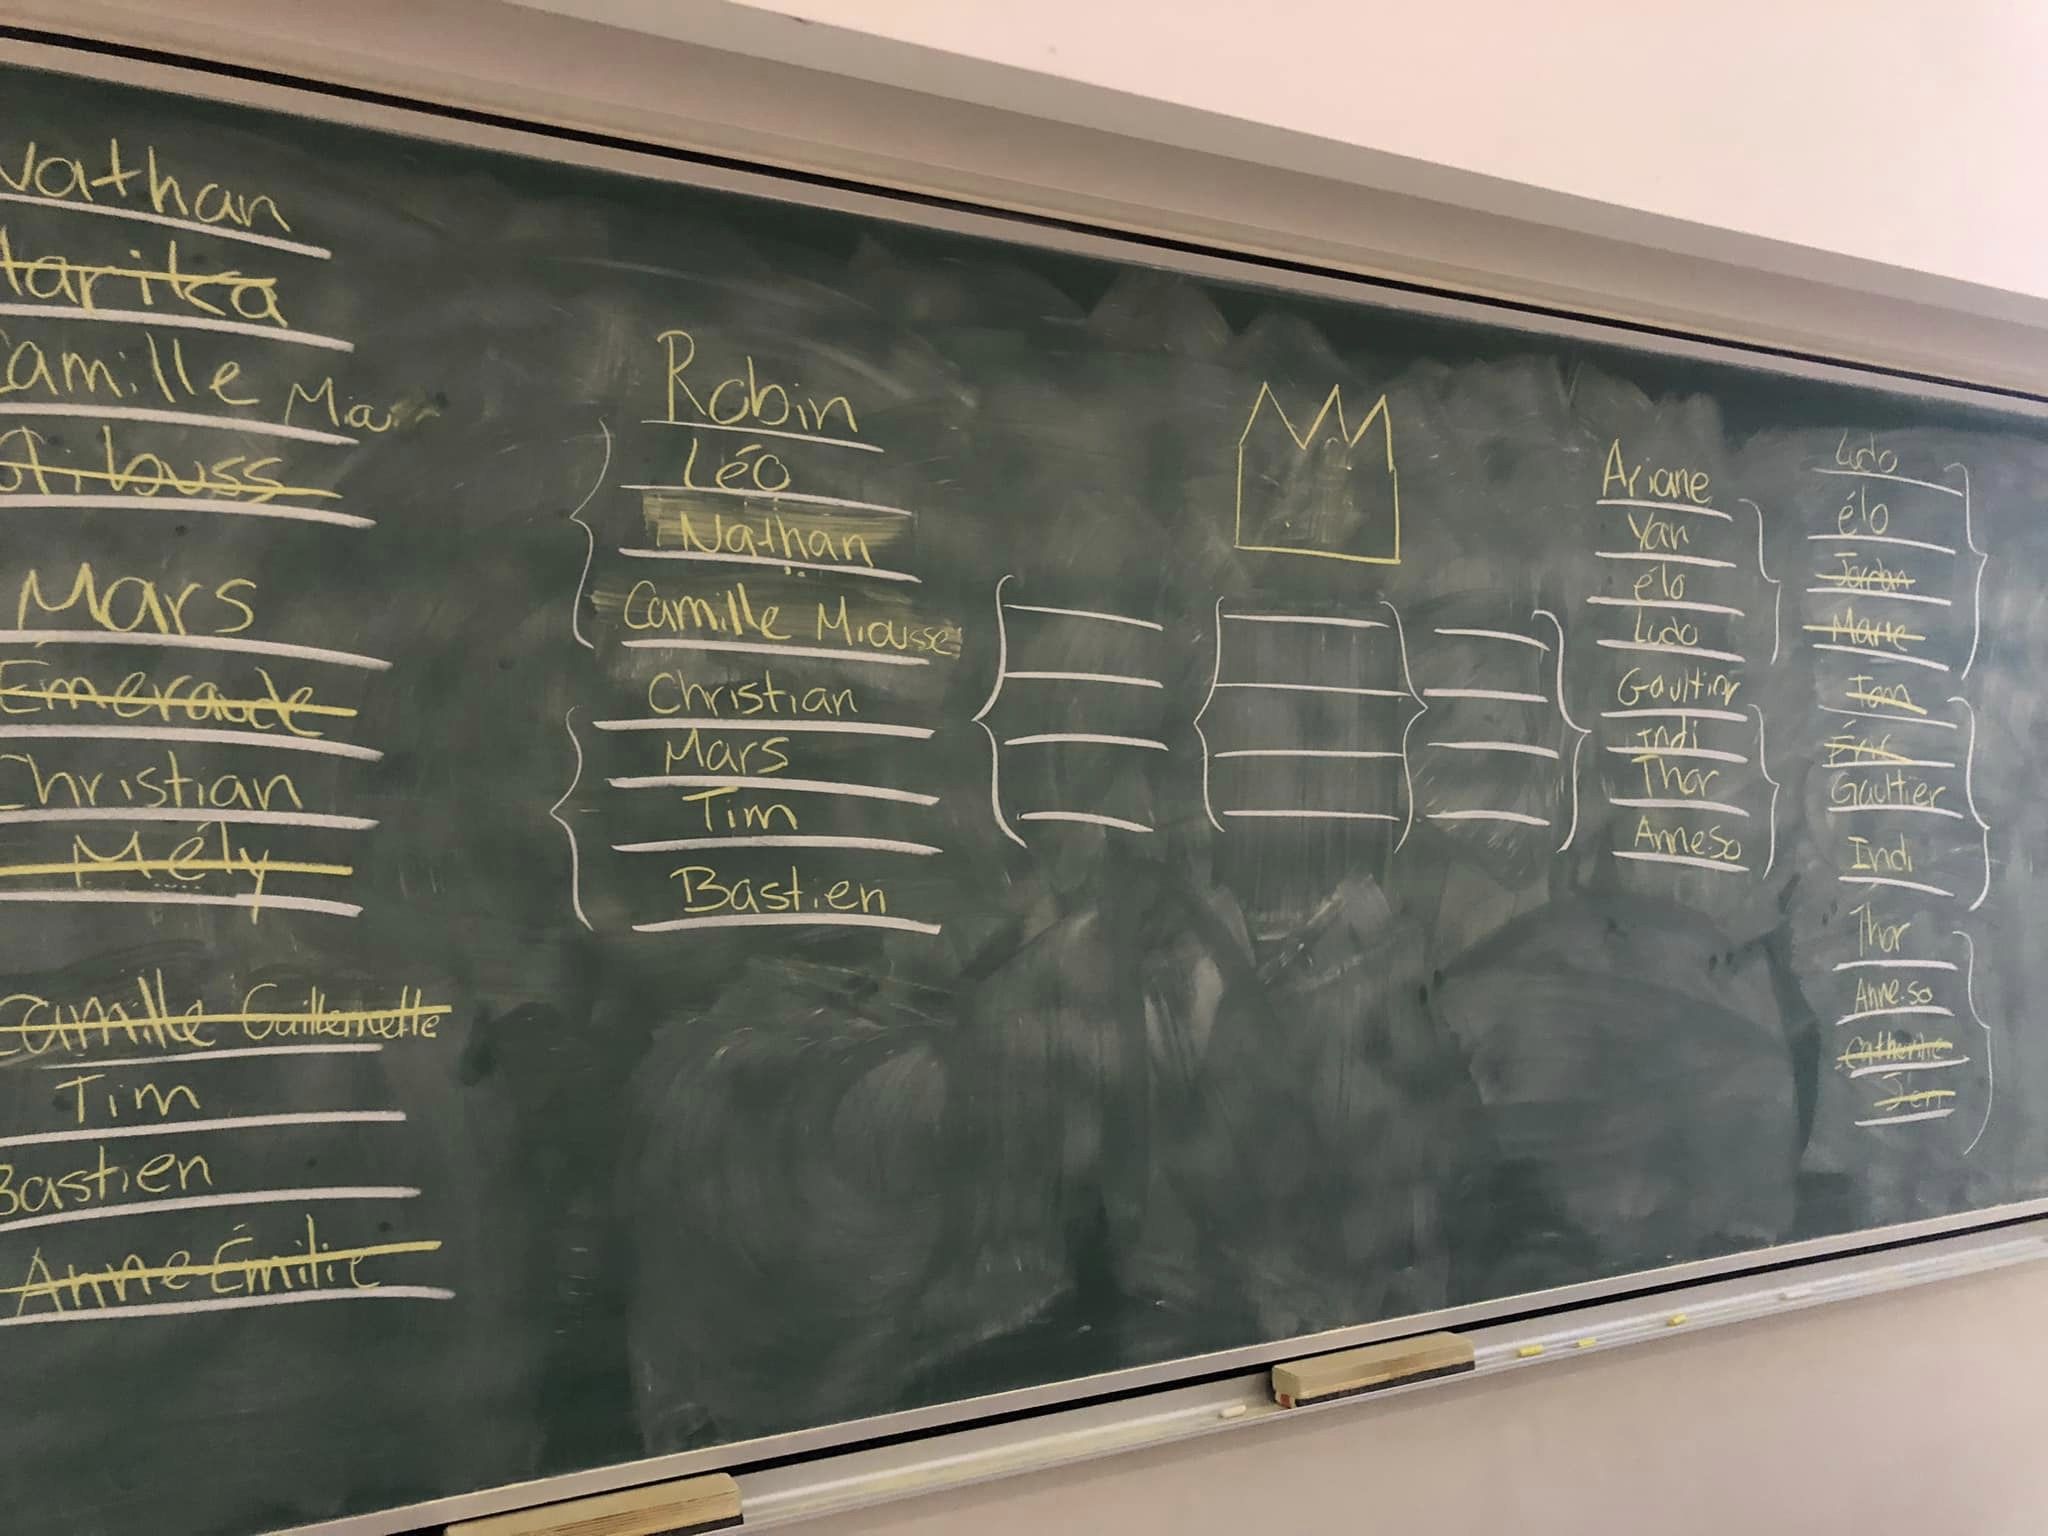 Nathan
Marika
Camille
Mars
Émeraude
Christian
Mély
Camille Guillemette
Tim
Bastien
Anne-Émilie
Robin
Léo
Nathan
Camille Miousse
Christian
Mars
Tim
Bastien
Ariane
Yan
élo
Ludo
Gaultier
Indi
Thor
Anne-so
Ludo
élo
Jordan
Marie
Tom
Éric
Gaultier
Indi
Thor
Anne-so
Catherine
Jen